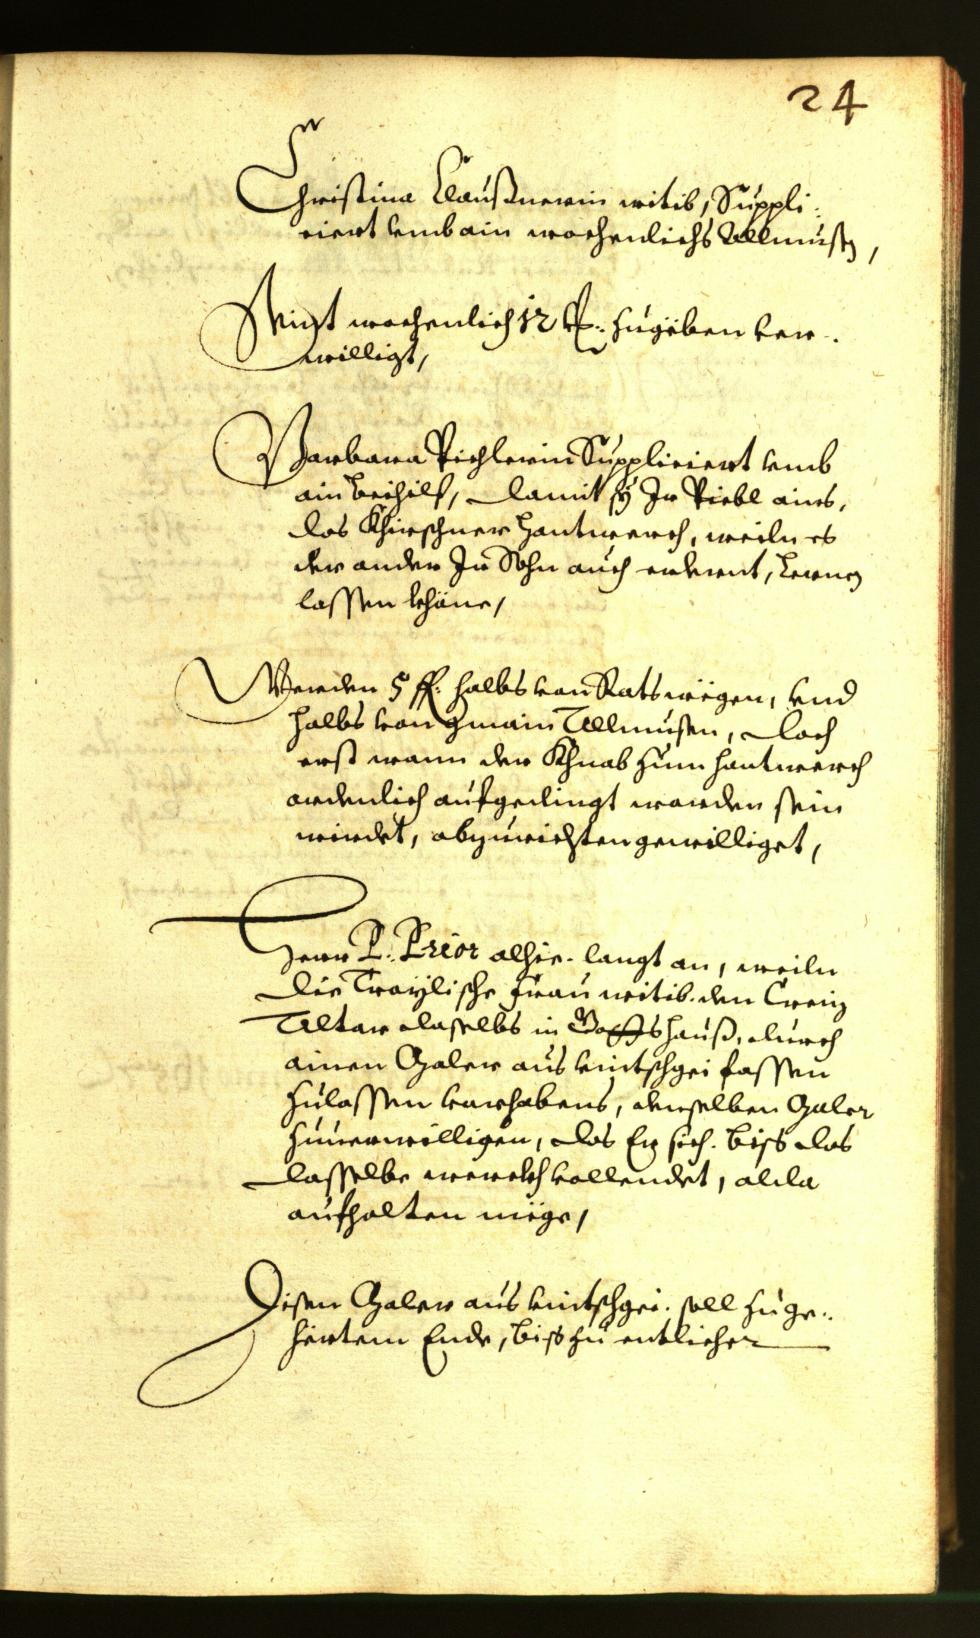 24
Christina Claußnerin witib, Suppli:
ciert umb ain wochenlichs Allmuß,
Seint wochenlich 12 kr: zugeben ver-
williget,
Barbara Pichlerin Suppliciert umb
ain beihilf, damit sÿ Ir Piebl ains,
das Khirschner hantwerch, weiln es
der ander Ir Sohn auch erlernt, lernen
lassen khäne,
Werden 5 fl: halbs von Rats wegen, und
halbs von gmain Allmusen, doch
erst wann der Khnab zum hantwerch
ordenlich aufgedingt worden sein
wirdet, abzurichten gewilliget,
Herr P: Prior alhie langt an, weiln
die Troÿlische frau witib den Creiz
Altar daselbs in Gottshauß, durch
ainen Maler aus vintschgei fassen
zulassen vorhabens, demselben Maler
zuverwilligen, das Er sich biss das
dasselbe werckh vollendet, alda
aufhalten müge,
Disen Maler aus vintschgei soll zu ge-
hörtem Ende, biss zu entlicher